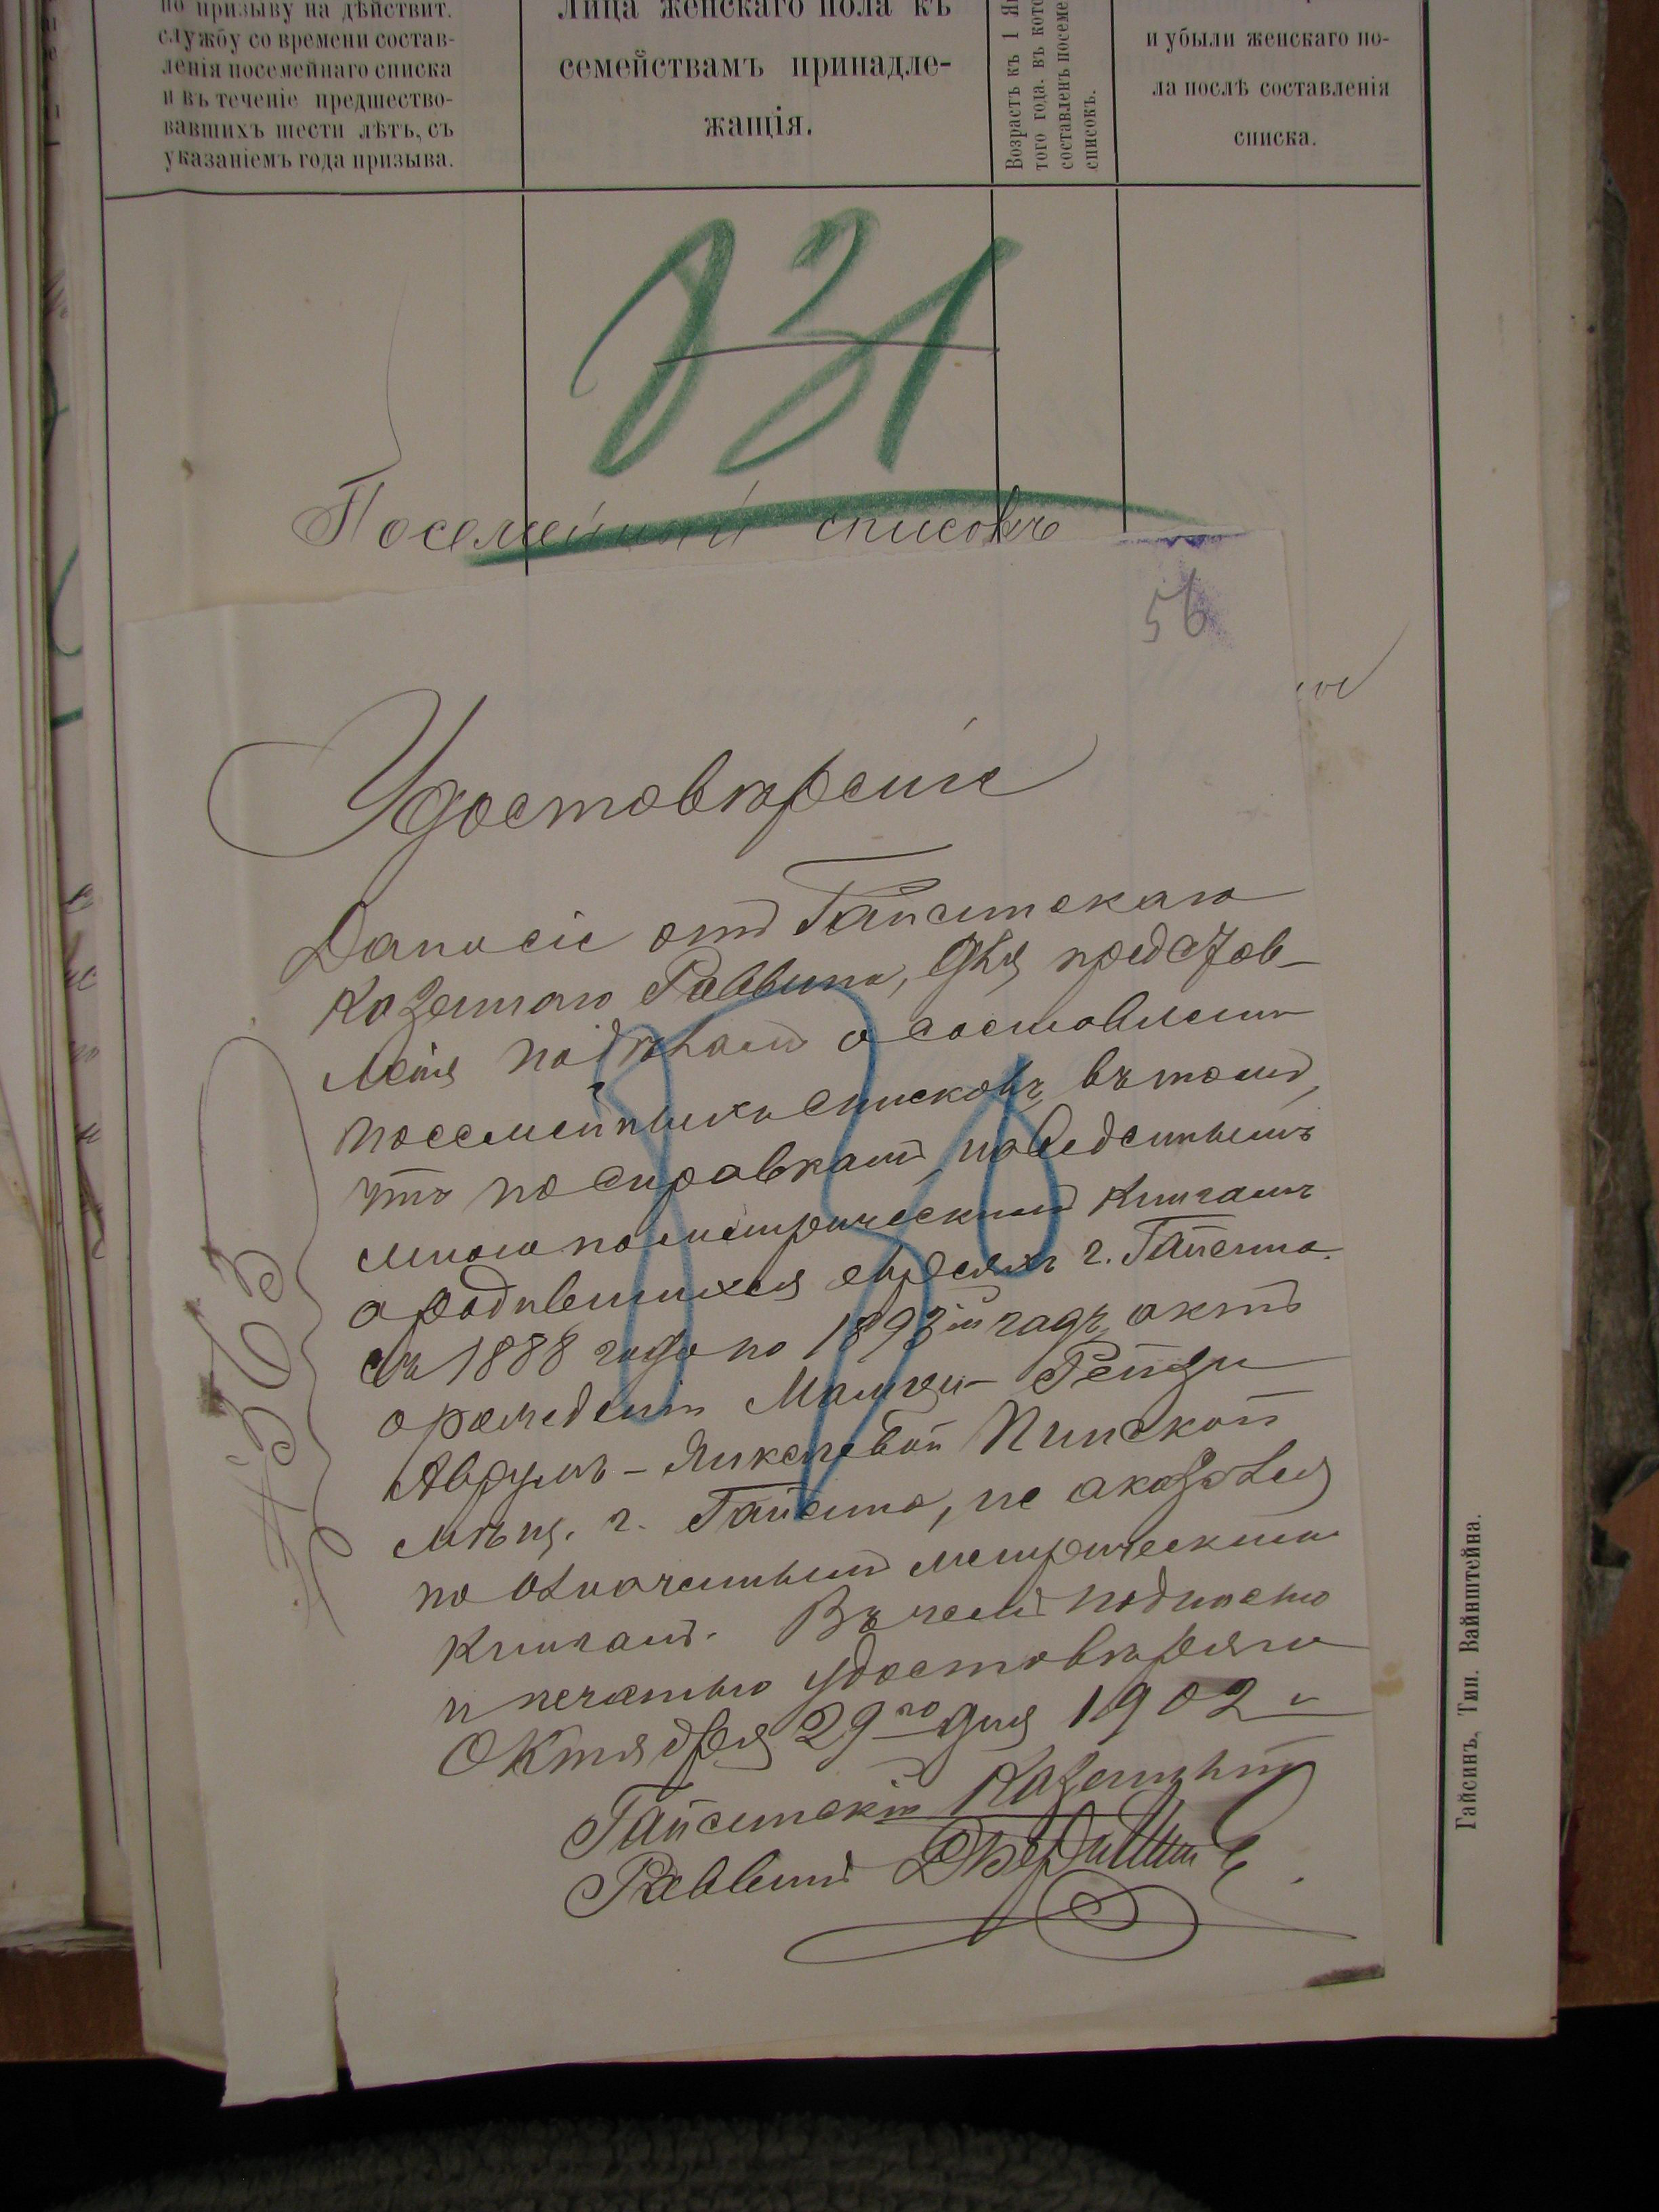 по призыву на дѣйствит.
службу со времени состав-
ленія посемейнаго списка
и въ теченіе предшество-
вавшихъ шести лѣтъ, съ
указаніемъ года призыва.
Лица женскаго пола къ
семействамъ принадле-
жащія.
Возрастъ къ 1 Ян
того года. въ кото
составленъ посеме
списокъ.
и убыли женскаго по-
ла послѣ составленія
списка.
831
Посемейный списокъ
56
Удостовѣреніе
Данное отъ Гайсинскаго
Казеннаго Раввина, для представ-
ленія подѣламъ о составленіи
посемейныхъ списковъ, въ томъ,
что по справкамъ, наведеннымъ
мною по метрическимъ книгамъ
о родившихся евреяхъ г. Гайсина
съ 1888 года по 1893й годъ, актъ
о рожденіи Малки-Рейзи
Аврумъ-Янкелевой Пинской
мѣщ. г. Гайсина, не оказался
по означеннымъ метрическимъ
книгамъ. Въ чемъ подписью
и печатью удостовѣряю
Октября 29го дня 1902 г.
Гайсинскій Казенный
Раввинъ
№ 363
Гайсинъ, Тип. Вайнштейна.